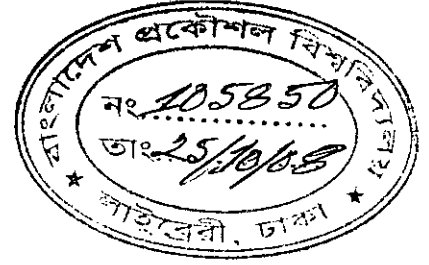 বাংলাদেশ প্রকৌশল বিশ্ববিদ্যালয়
নং 105850
তাং 25/10/08
★ লাইব্রেরী, ঢাকা ★